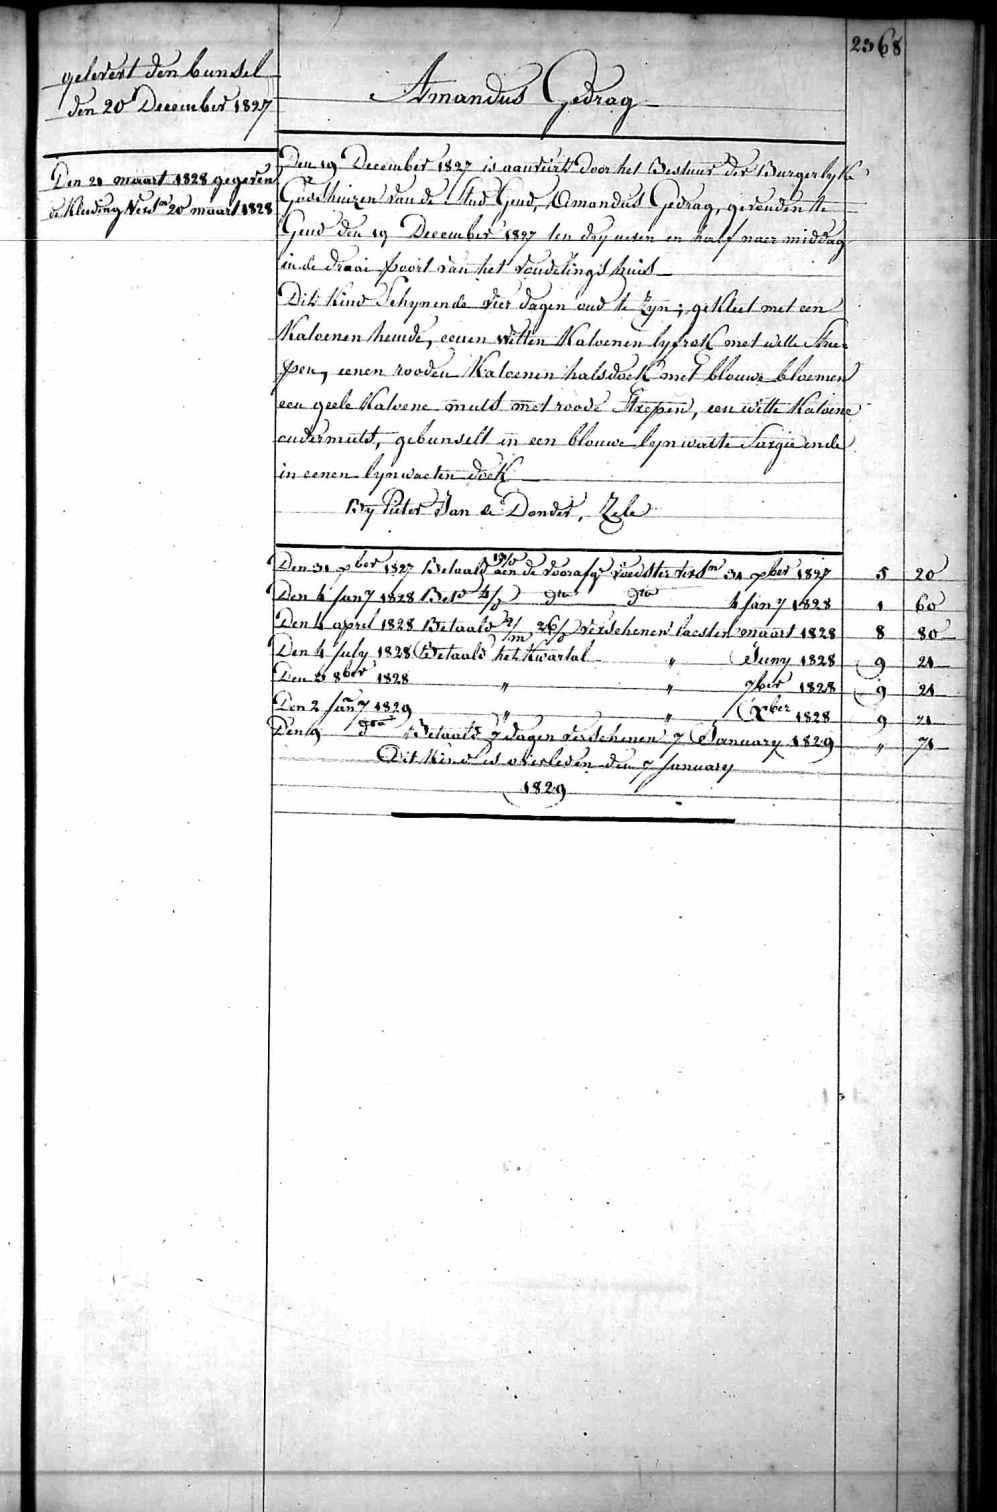 2368
gelevert den bunsel
den 20 December 1827
Amandus Gedrag
Den 21 maart 1828 gegeven
de Kleeding Versn 20 maart 1828
Den 19 December 1827 is aanveirt door het Bestuur der Burgerlyke
Godshuizen van de Stad Gend, Amandus Gedrag, gevonden te
Gend den 19 December 1827 ten dry uren en half naer middag
in de draai poort van het vondelings huis
Dit kind schynende vier dagen oud te zyn; gekleet met een
Katoenen hemde, eenen witten Katoenen lyfrok met witte stre-
pen, eenen rooden Katoenen halsdoek met blouwe bloemen
een geele Katoene muts met roode strepen, een witte Katoene
ondermuts, gebunselt in een blouwe lynwaete Sargie ende
in eenen lynwaeten doek
By Pieter Jan de Donder, Zele
Den 31 xber 1827 Betaald aen de voorafge voedster versn 31 xber 1827 5 20
Den 4 Jany 1828 Betd 4/ dto dto 4 Jany 1828 1 60
Den 4 april 1828 Betaald 2/m 26/ verschenen laesten maart 1828 8 80
Den 4 July 1828 Betaald het Kwartal " Juny 1828 9 21
Den 2 8ber 1828 " " 7ber 1828 9 21
Den 2 Jany 1829 " " Xber 1828 9 21
Den 9 dto Betaald 7 dagen verschenen 7 January 1829 " 71
Dit kind is overleden den 7 January
1829